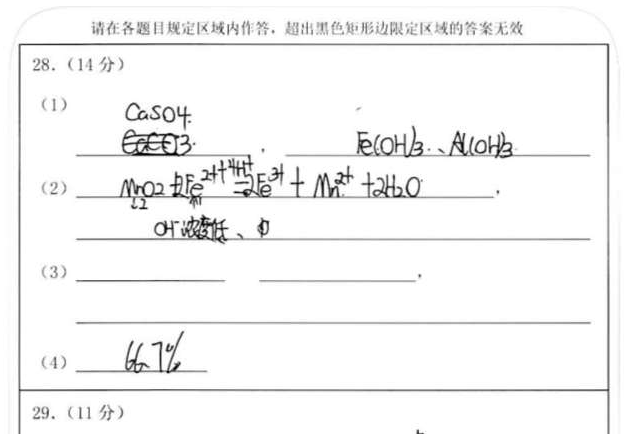 请在各题目规定区域内作答，超出黑色矩形边限定区域的答案无效
28.（14 分）
（1） CaSO4.
， Fe(OH)3、Al(OH)3
（2） MnO2+2Fe²⁺+4H⁺=2Fe³⁺+Mn²⁺+2H2O ，
OH⁻浓度低、
（3） ，
（4） 66.7%
29.（11 分）